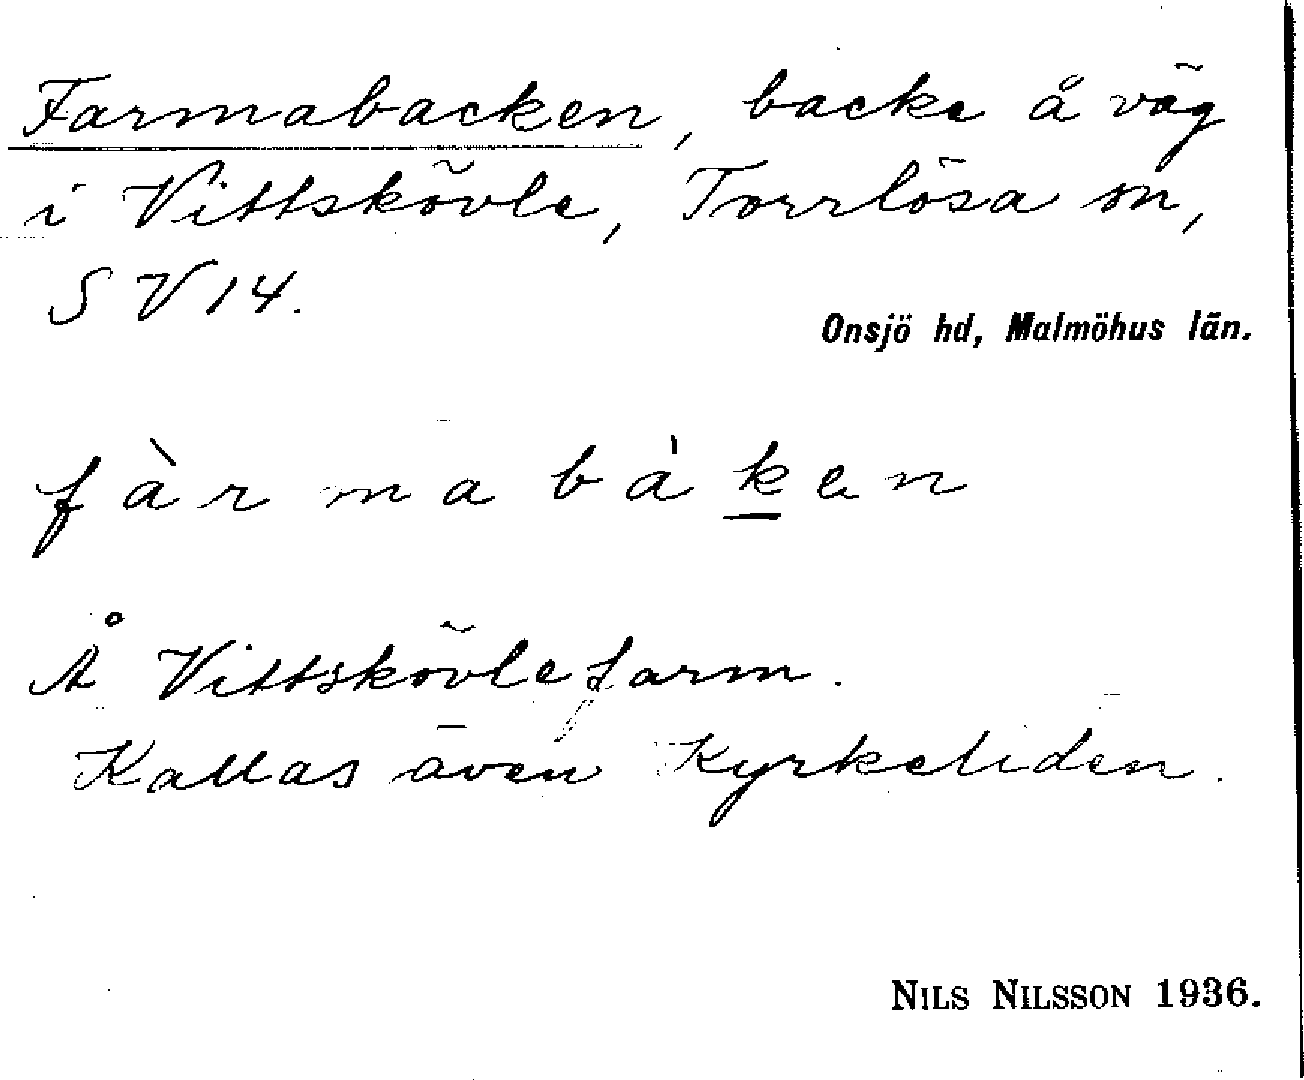 Farmabacken, backe å väg
i Vittskövle, Torrlösa sn,
SV14.
Onsjö hd, Malmöhus län.
fàrmabáken
Å Vittskövlefarm.
Kallas även Kyrkeliden.
NILS NILSSON 1936.